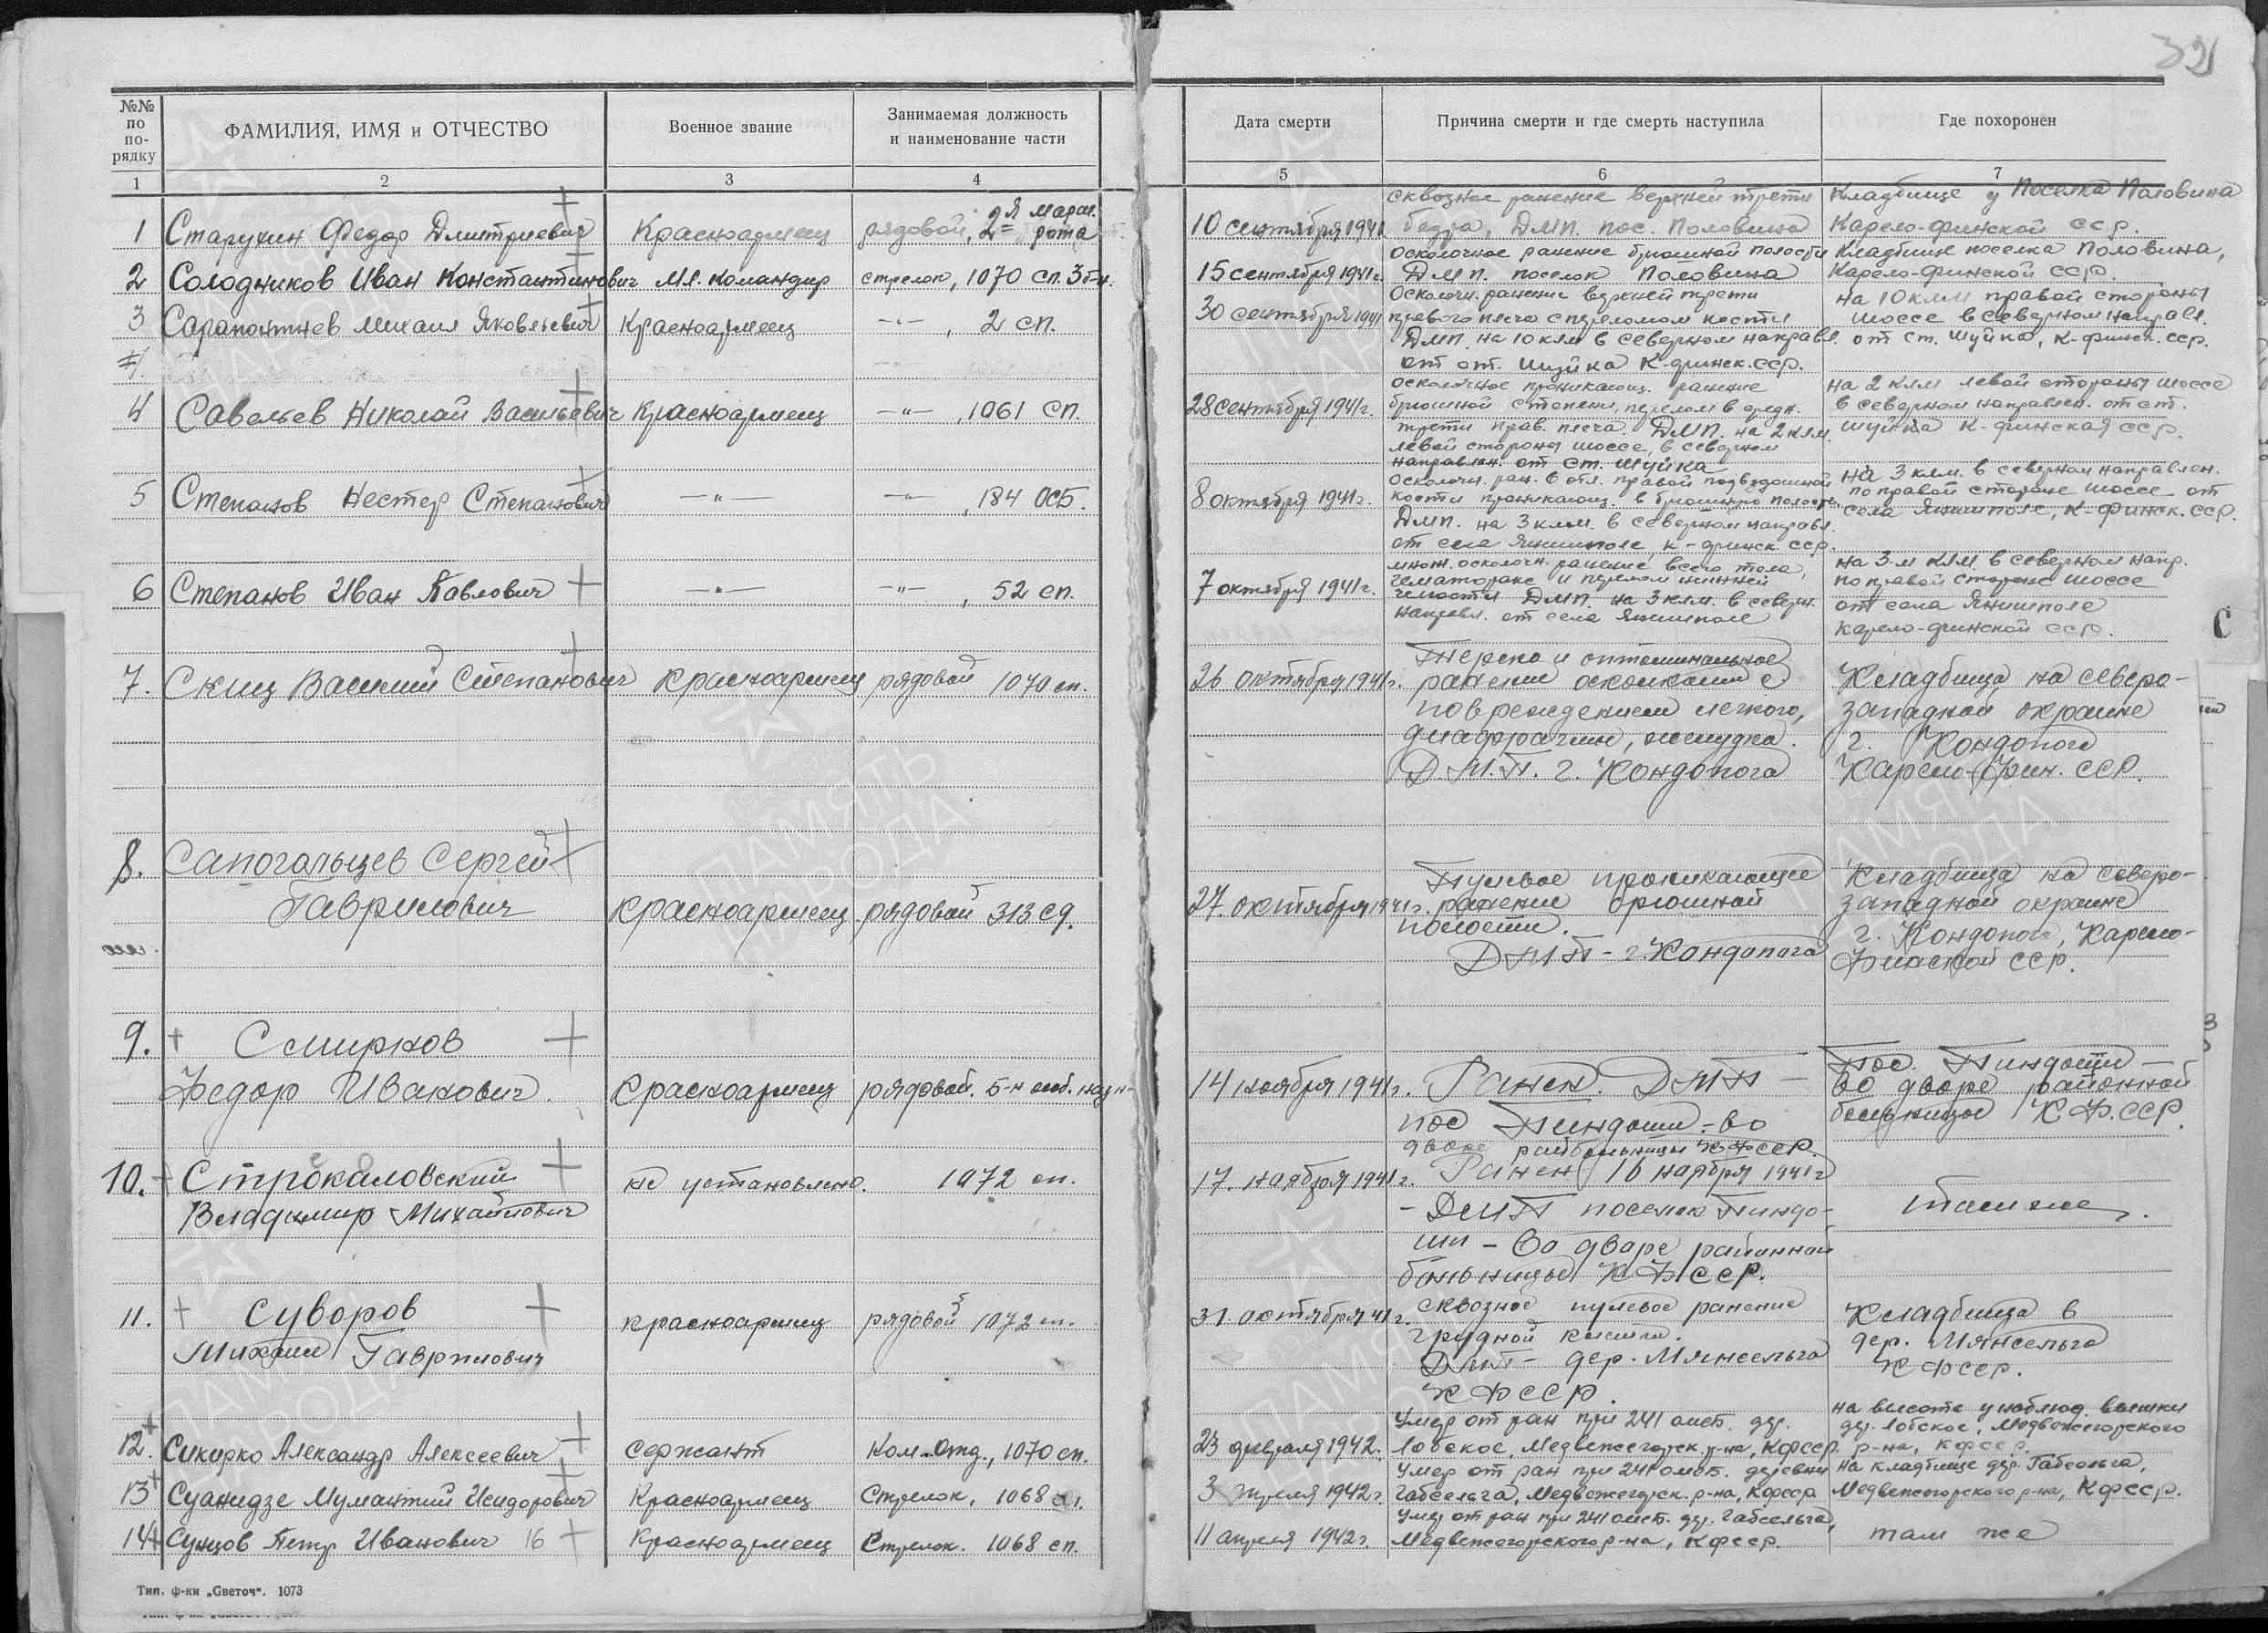 32
№№ по по-рядку
ФАМИЛИЯ, ИМЯ и ОТЧЕСТВО
Военное звание
Занимаемая должность
и наименование части
Дата смерти
Причина смерти и где смерть наступила
Где похоронен
1 2 3 4 5 6 7
1 Старухин Федор Дмитриевич Красноармеец рядовой, 2я марш. рота
10 сентября 1941
сквозное ранение верхней трети
бедра, ДМП. пос. Половина
Кладбище у Поселка Половина
Карело-финской ССР.
2 Солодников Иван Константинович Мл. командир стрелок, 1070 сп. 3 б-н.
15 сентября 1941 г.
осколочное ранение брюшной полости
ДМП. поселок Половина
Кладбище поселка Половина,
Карело-финской ССР.
3 Сарапонтнев Михаил Яковлевич Красноармеец -"- , 2 сп.
30 сентября 1941
Осколочн. ранение верхней трети
правого плеча с переломом кости
ДМП. на 10 клм в северном направл.
от ст. Шуйка К-финск. ССР.
на 10 клм правой стороны
шоссе в северном направл.
от ст. Шуйка, К-финск. ССР.
4 Савельев Николай Васильевич Красноармеец -"- , 1061 сп.
28 сентября 1941 г.
осколочное проникающ. ранение
брюшной степени, перелом в средн.
трети прав. плеча. ДМП. на 2 клм.
левой стороны шоссе, в северном
направлен. от ст. Шуйка
на 2 клм левой стороны шоссе
в северном направлен. от ст.
Шуйка К-финская ССР.
5 Степанов Нестер Степанович -"- -"- , 184 ОСБ.
8 октября 1941 г.
Осколочн. ран. в обл. правой подвздошной
кости проникающ. в брюшную полость,
ДМП. на 3 клм. в северном направл.
от села Янишполе, К-финск ССР.
На 3 клм. в северном направлен.
по правой стороне шоссе от
села Янишполе, К-финск. ССР.
6 Степанов Иван Павлович -"- -"- , 52 сп.
7 октября 1941 г.
множ. осколочн. ранение всего тела,
гематоракс и перелом нижней
челюсти ДМП. на 3 клм. в северн.
направл. от села Янишполе
на 3-м клм в северном напр.
по правой стороне шоссе
от села Янишполе
Карело-финской ССР.
7. Скиц Василий Степанович красноармеец рядовой 1070 сп.
26 октября 1941 г.
ранение осколками с
повреждением легкого,
диафрагмы, желудка.
Д.М.П. г. Кондопога
Кладбища на северо-
западной окраине
г. Кондопога
Карело-Фин. ССР.
8. Сапогальцев Сергей
Гаврилович красноармеец рядовой 313 сд.
27. октября 1941 г.
Пулевое проникающее
ранение брюшной
полости.
ДМП - г. Кондопога
Кладбища на Северо-
западной окраине
г. Кондопога, Карело-
Финской ССР.
9. Смирнов
Федор Иванович. красноармеец рядовой. Б-н особ. назн-
14 ноября 1941 г.
Ранен. ДМП -
пос Пиндоши - во
дворе райбольницы КФССР.
Пос. Пиндоши -
во дворе районной
больницы К.Ф.ССР.
10. Строкаловский
Владимир Михайлович не установлено. 1072 сп.
17. ноября 1941 г.
Ранен 16 ноября 1941 г
- ДМП поселок Пиндо-
ши - во дворе районной
больницы КФССР.
там же.
11. Суворов
Михаил Гаврилович красноармеец рядовой 1072 сп.
31. октября 41 г.
сквозное пулевое ранение
грудной клетки.
ДМП - дер. Мянсельга
КФССР.
Кладбища в
дер. Мянсельга
КФССР.
12. Сикирко Александр Алексеевич Сержант Ком. отд., 1070 сп.
23 февраля 1942.
Умер от ран при 241 омсб. дер.
Лобское, Медвежегорск. р-на, КФССР.
на высоте у наблюд. вышки
дер. Лобское, Медвежегорского
р-на, КФССР.
13 Суанидзе Мумантий Исидорович Красноармеец Стрелок, 1068 сп.
3 апреля 1942 г.
Умер от ран при 241 омсб. деревни
Габсельга, Медвежегорск. р-на, КФССР
на кладбище дер. Габсельга,
Медвежегорского р-на, КФССР.
14 Сунцов Петр Иванович 16 Красноармеец Стрелок. 1068 сп.
11 апреля 1942 г.
Умер от ран при 241 омсб. дер. Габсельга,
Медвежегорского р-на, КФССР.
там же
Тип. ф-ки „Светоч". 1073
ПАМЯТЬ НАРОДА